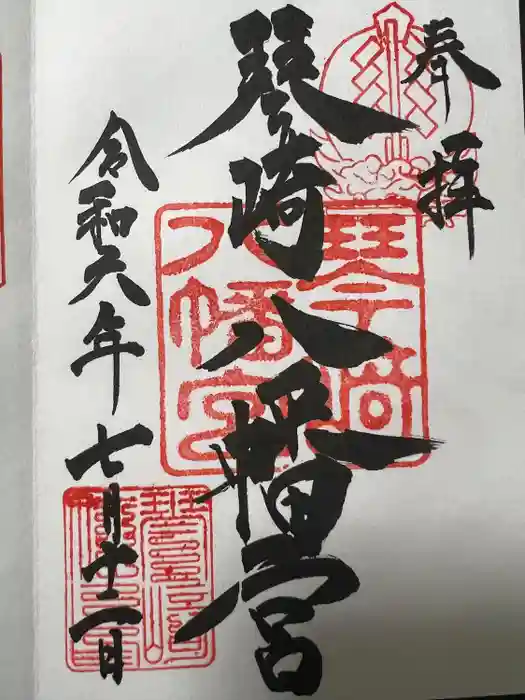 奉拝
琴崎八幡宮
令和六年七月十一日
琴崎八幡宮